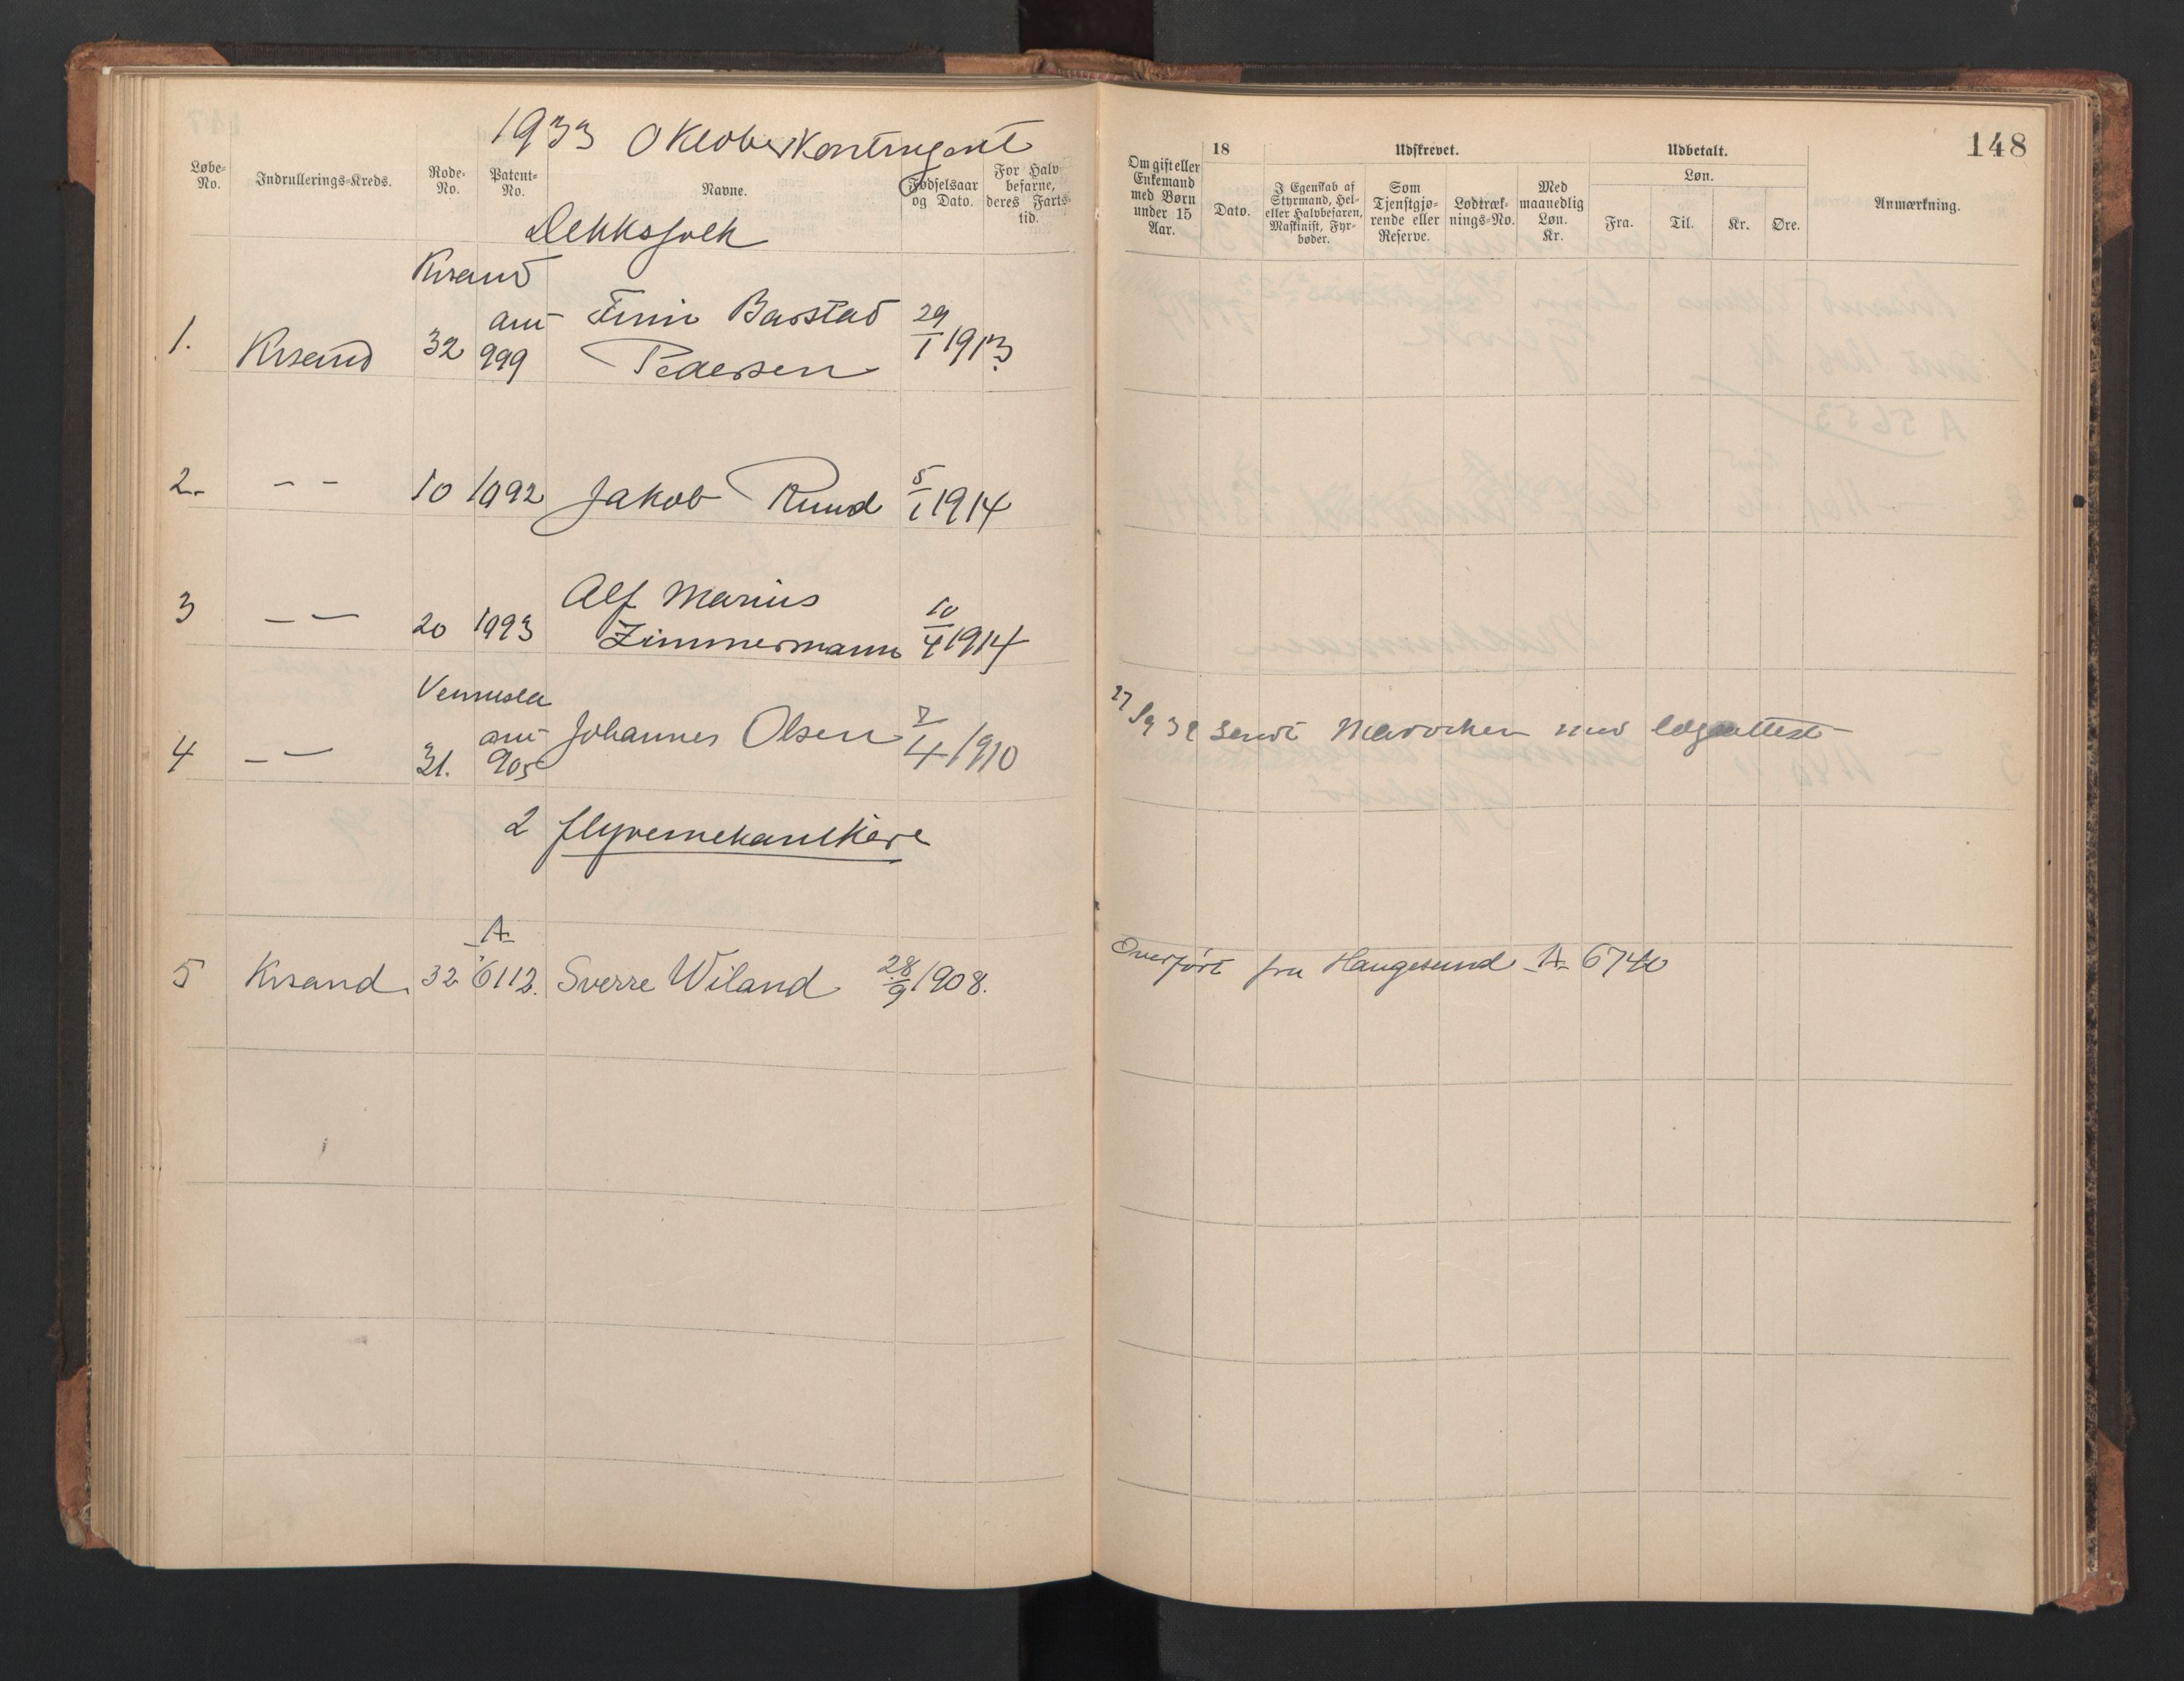 1933 Oktoberkontingent
Løbe-No.
Indrullerings-Kreds.
Rode-No.
Patent-No.
Navne.
Fødselsaar og Dato.
For Halvbefarne, deres Fartstid.
Dekksfolk
Krsand
1. Krsand 32 999 Finn Barstad 29/1 1913
Pedersen
2. – – 10 1992 Jakob Ruud 5/1 1914
3 – – 20 1993 Alf Marius
Zimmermann 10/4 1914
Vennesla
4 – – 31. 905 Johannes Olsen 7/4 1910
2 flyvemekanikere
A
5 Krsand. 32 6112. Sverre Wiland 28/9 1908.
148
Om gift eller Enkemand med Børn under 15 Aar.
18
Dato.
Udskrevet.
I Egenskab af Styrmand, Hel- eller Halvbefaren, Maskinist, Fyrbøder.
Som Tjenstgjørende eller Reserve.
Lodtræknings-No.
Med maanedlig Løn. Kr.
Udbetalt.
Løn.
Fra.
Til.
Kr.
Øre.
Anmærkning.
sendt med lægeattest
Overført fra Haugesund A 6740